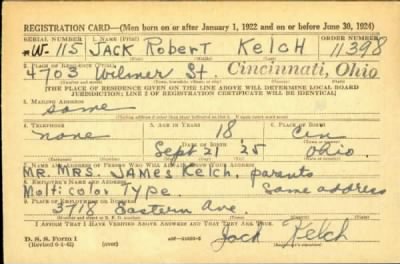 REGISTRATION CARD—(Men born on or after January 1, 1922 and on or before June 30, 1924)
SERIAL NUMBER 1. NAME (Print) ORDER NUMBER
W-115 JACK Robert Kelch 11,398
2. PLACE OF RESIDENCE (Print)
4703 Wilmer St. Cincinnati, Ohio
(THE PLACE OF RESIDENCE GIVEN ON THE LINE ABOVE WILL DETERMINE LOCAL BOARD
JURISDICTION; LINE 2 OF REGISTRATION CERTIFICATE WILL BE IDENTICAL)
3. MAILING ADDRESS
same
4. TELEPHONE 5. AGE IN YEARS 6. PLACE OF BIRTH
none 18 Cin
DATE OF BIRTH
Sept 21 25 Ohio
7. NAME AND ADDRESS OF PERSON WHO WILL ALWAYS KNOW YOUR ADDRESS
MR. MRS. JAMES Kelch, parents
8. EMPLOYER'S NAME AND ADDRESS
Molti color Type. Same address
9. PLACE OF EMPLOYMENT OR BUSINESS
3718 Eastern Ave.
I AFFIRM THAT I HAVE VERIFIED ABOVE ANSWERS AND THAT THEY ARE TRUE.
D. S. S. Form 1
(Revised 6-1-42)
Jack Kelch